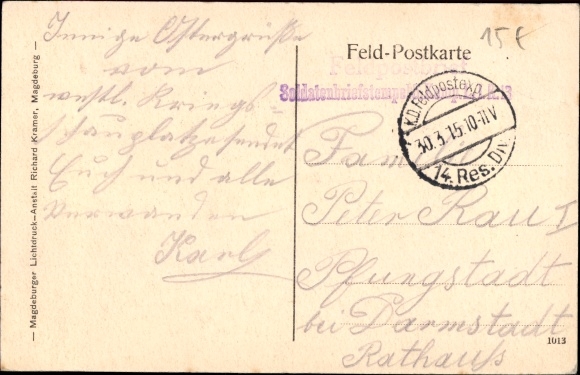 Innige Ostergrüße
vom
westl. Kriegs-
schauplatz sendet
Euch und alle
Verwanden
Karl
— Magdeburger Lichtdruck-Anstalt Richard Kramer, Magdeburg —
15 €
Feld-Postkarte
Feldpostbrief
Soldatenbriefstempel
K.D. Feldpostexp.
30.3.15.10-11V
14. Res. Div.
Fam
Peter Rau I
Pfungstadt
bei Darmstadt
Rathaus
1013